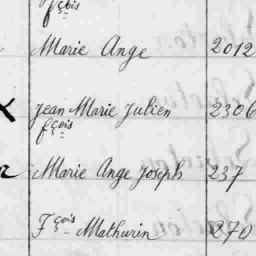 fçois
Marie Ange 2012
Jean Marie Julien 2306
fçois
Marie Ange Joseph 237
Fçois Mathurin 270